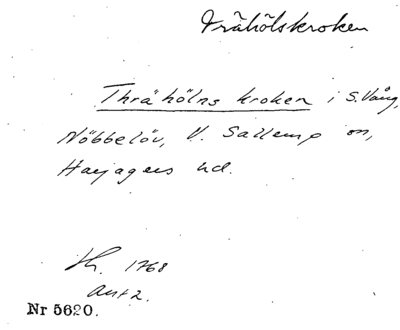 Trähölskroken
Thrähölns kroken i S. Vång,
Nöbbelöv, V. Sallerup sn,
Harjagers hd.
Th. 1768
Akt 2.
Nr 5620.